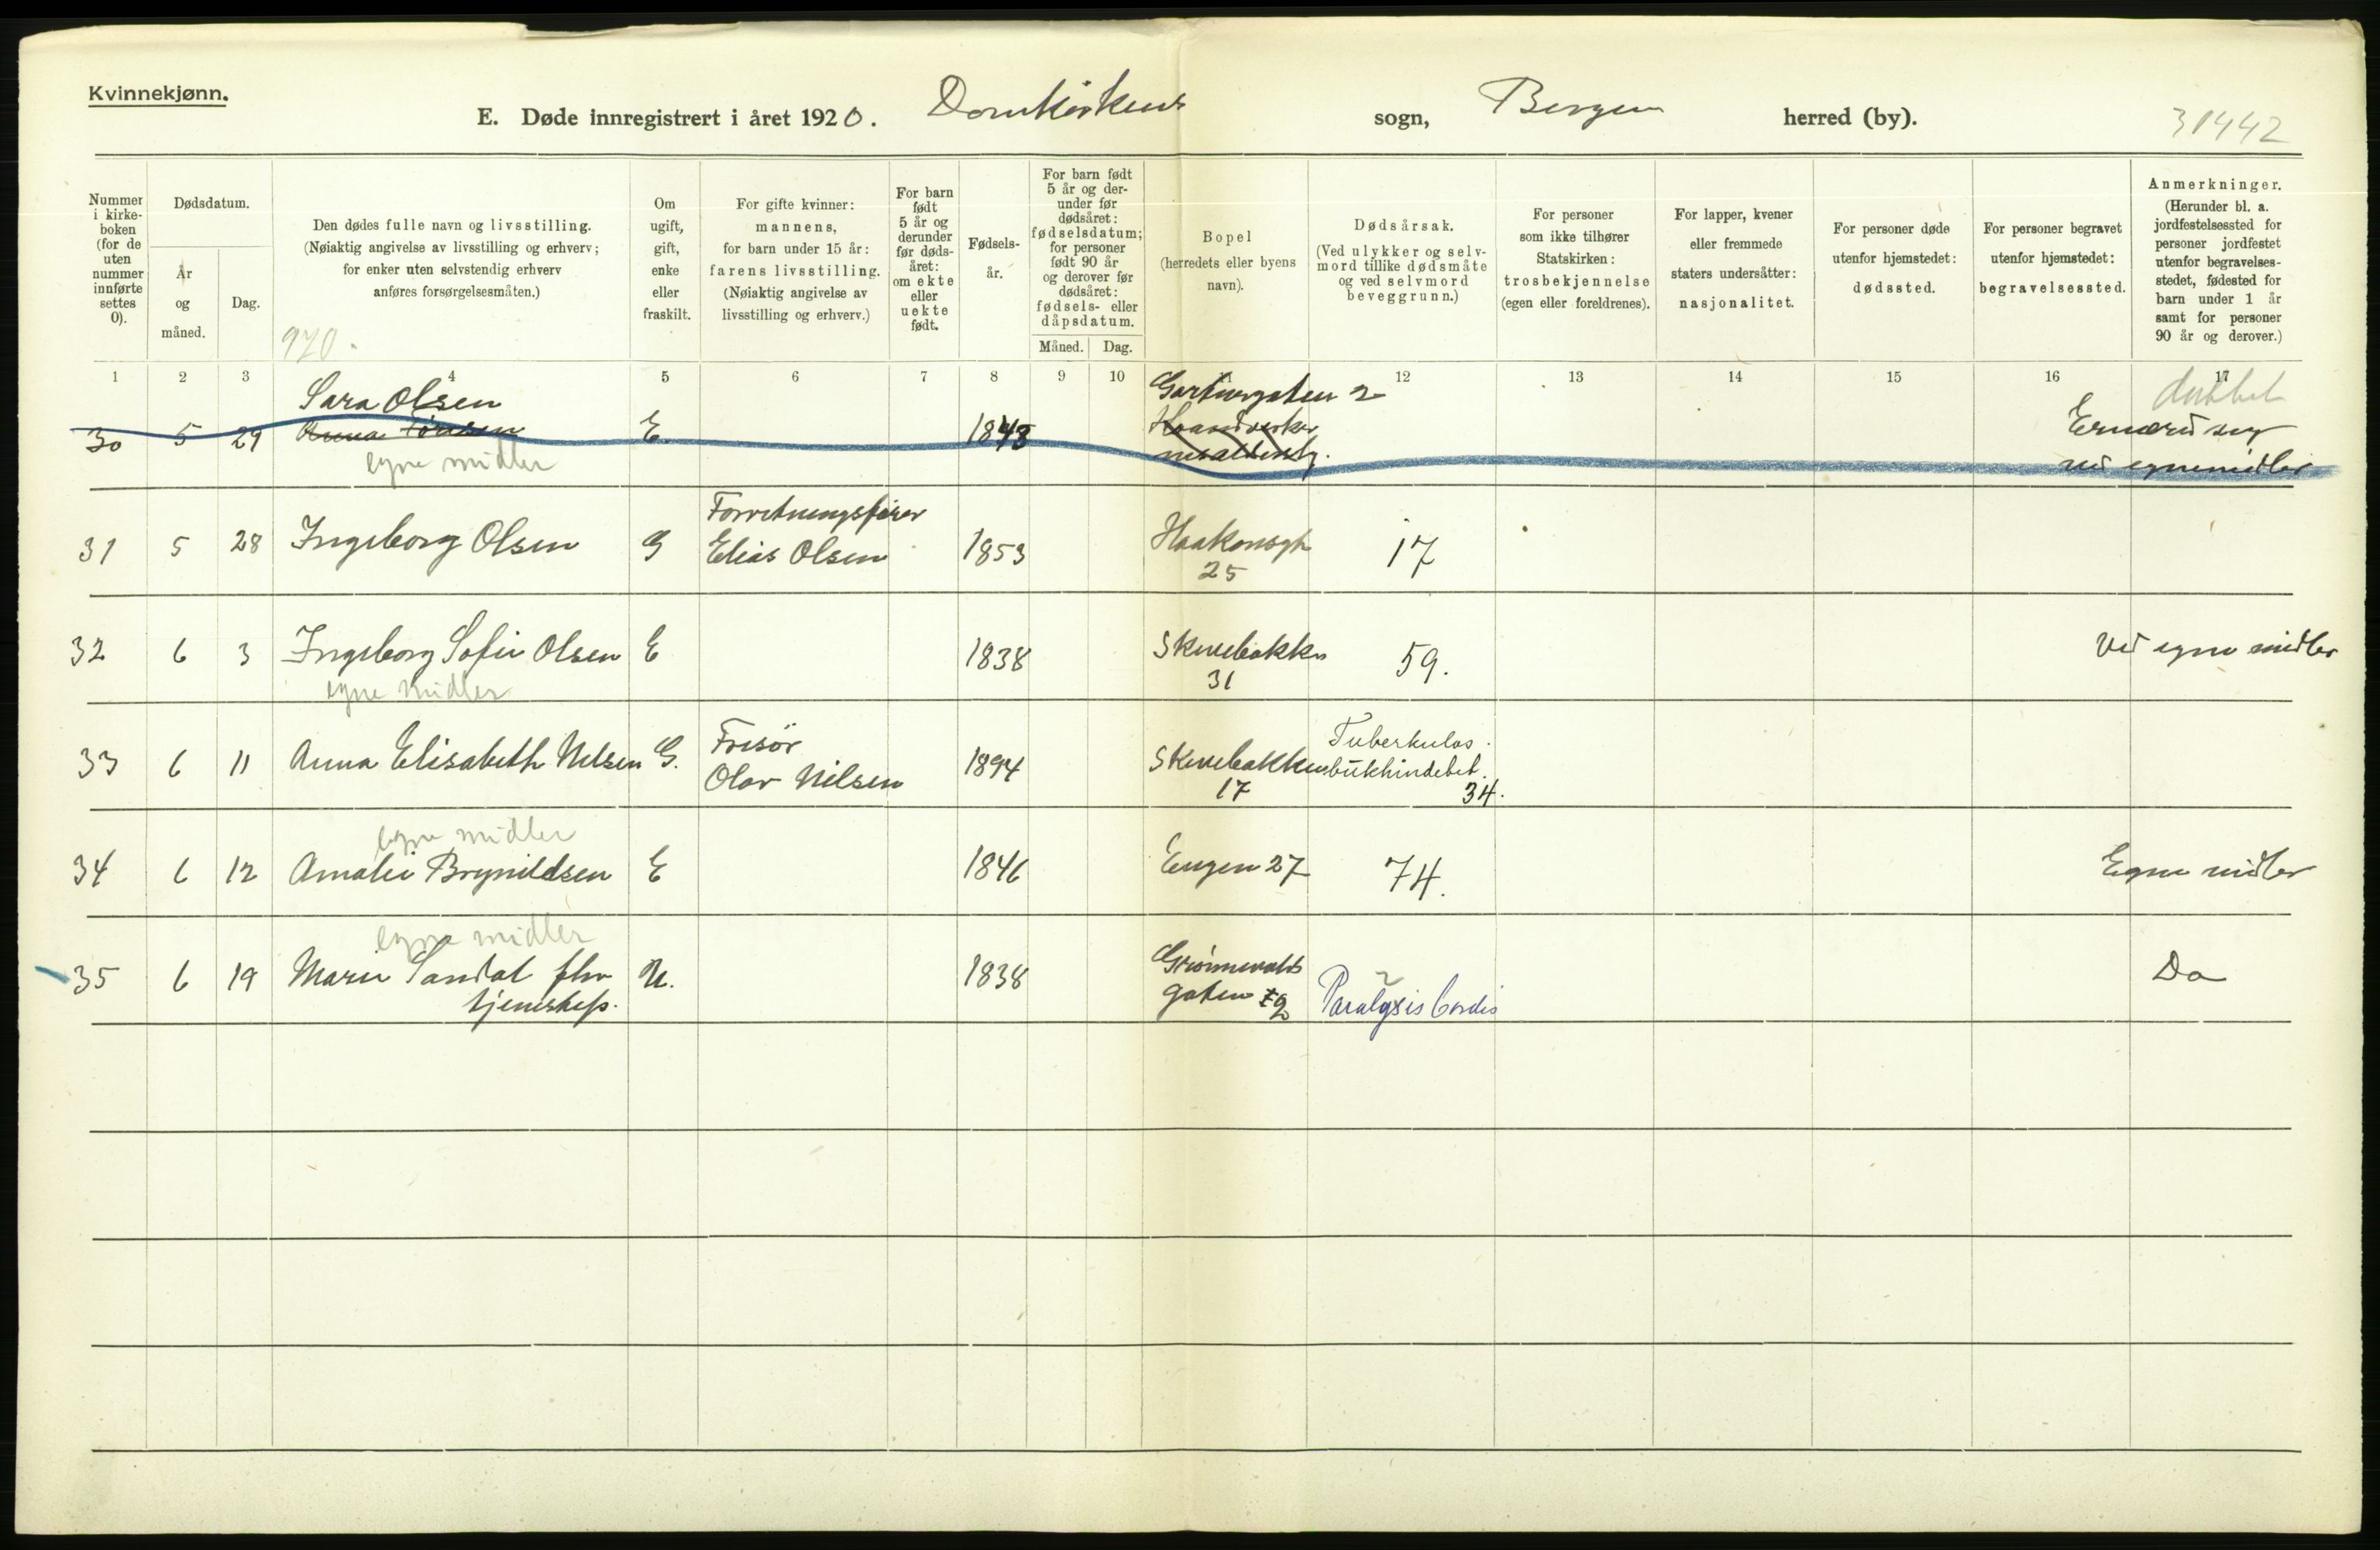 Kvinnekjønn.
E. Døde innregistrert i året 1920. Domkirkens sogn, Bergen herred (by).
31442
Nummer i kirke-boken (for de uten nummer innførte settes 0).
Dødsdatum.
År og måned.
Dag.
Den dødes fulle navn og livsstilling.
(Nøiaktig angivelse av livsstilling og erhverv;
for enker uten selvstendig erhverv
anføres forsørgelsesmåten.)
970.
Om ugift, gift, enke eller fraskilt.
For gifte kvinner:
mannens,
for barn under 15 år:
farens livsstilling.
(Nøiaktig angivelse av
livsstilling og erhverv.)
For barn født 5 år og derunder før døds-året: om ekte eller uekte født.
Fødsels-år.
For barn født 5 år og der-under før dødsåret: fødselsdatum; for personer født 90 år og derover før dødsåret: fødsels- eller dåpsdatum.
Måned. Dag.
Bopel
(herredets eller byens
navn).
Dødsårsak.
(Ved ulykker og selv-
mord tillike dødsmåte
og ved selvmord
beveggrunn.)
For personer
som ikke tilhører
Statskirken:
trosbekjennelse
(egen eller foreldrenes).
For lapper, kvener
eller fremmede
staters undersåtter:
nasjonalitet.
For personer døde
utenfor hjemstedet:
dødssted.
For personer begravet
utenfor hjemstedet:
begravelsessted.
Anmerkninger.
(Herunder bl. a.
jordfestelsessted for
personer jordfestet
utenfor begravelses-
stedet, fødested for
barn under 1 år
samt for personer
90 år og derover.)
1 2 3 4 5 6 7 8 9 10 11 12 13 14 15 16 17
dubbet
Sara Olsen Gartnergaten 2
30 5 29 Anna E 1843 Haandverker Ernæret seg
egne midler ved egne midler
Forretningsfører
31 5 28 Ingeborg Olsen G Elias Olsen 1853 Haakonsgt 17
25
32 6 3 Ingeborg Sofie Olsen E 1838 Skivebakken 59. Ved egne midler
egne midler 31
Frisør Tuberkulos.
33 6 11 Anna Elisabeth Nilsen G. Olav Nilsen 1894 Skivebakken bukhindebet.
17 34.
egne midler
34 6 12 Amalie Brynildsen E 1846 Engen 27 74. Egne midler
egne midler
35 6 19 Marie Sandal fhv U. 1838 Grønnevolds Do
tjenestep. gaten 2 Paralysis Cordis